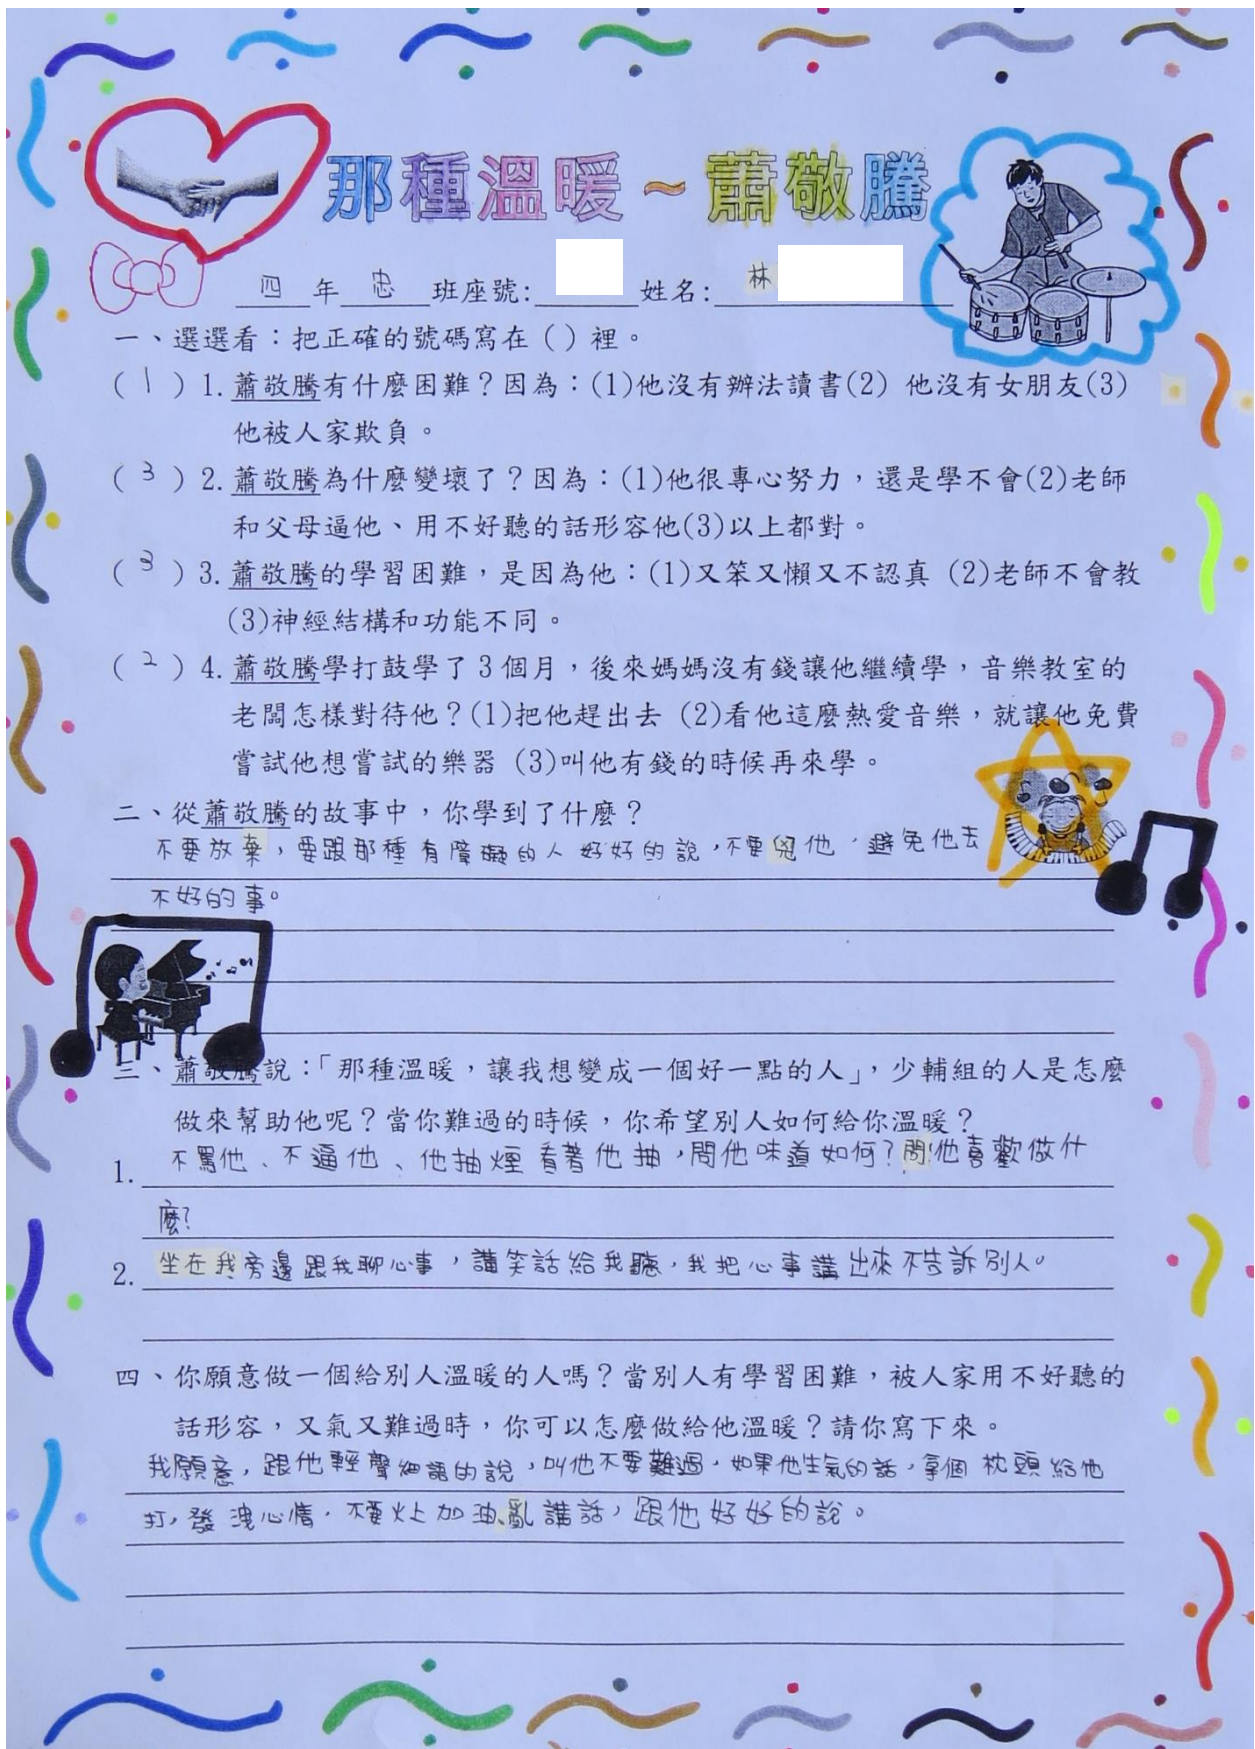 那種溫暖~蕭敬騰
四年忠班座號: 姓名: 林
一、選選看：把正確的號碼寫在（）裡。
（1）1.蕭敬騰有什麼困難？因為：(1)他沒有辦法讀書(2) 他沒有女朋友(3)
他被人家欺負。
（3）2.蕭敬騰為什麼變壞了？因為：(1)他很專心努力，還是學不會(2)老師
和父母逼他、用不好聽的話形容他(3)以上都對。
（3）3.蕭敬騰的學習困難，是因為他：(1)又笨又懶又不認真 (2)老師不會教
(3)神經結構和功能不同。
（2）4.蕭敬騰學打鼓學了3個月，後來媽媽沒有錢讓他繼續學，音樂教室的
老闆怎樣對待他？(1)把他趕出去 (2)看他這麼熱愛音樂，就讓他免費
嘗試他想嘗試的樂器 (3)叫他有錢的時候再來學。
二、從蕭敬騰的故事中，你學到了什麼？
不要放棄，要跟那種有障礙的人好好的說，不要兇他，避免他去
不好的事。
三、蕭敬騰說：「那種溫暖，讓我想變成一個好一點的人」，少輔組的人是怎麼
做來幫助他呢？當你難過的時候，你希望別人如何給你溫暖？
1. 不罵他、不逼他、他抽煙看著他抽，問他味道如何？問他喜歡做什
麼？
2. 坐在我旁邊跟我聊心事，講笑話給我聽，我把心事講出來不告訴別人。
四、你願意做一個給別人溫暖的人嗎？當別人有學習困難，被人家用不好聽的
話形容，又氣又難過時，你可以怎麼做給他溫暖？請你寫下來。
我願意，跟他輕聲細語的說，叫他不要難過，如果他生氣的話，拿個枕頭給他
打，發洩心情，不要火上加油、亂講話，跟他好好的說。